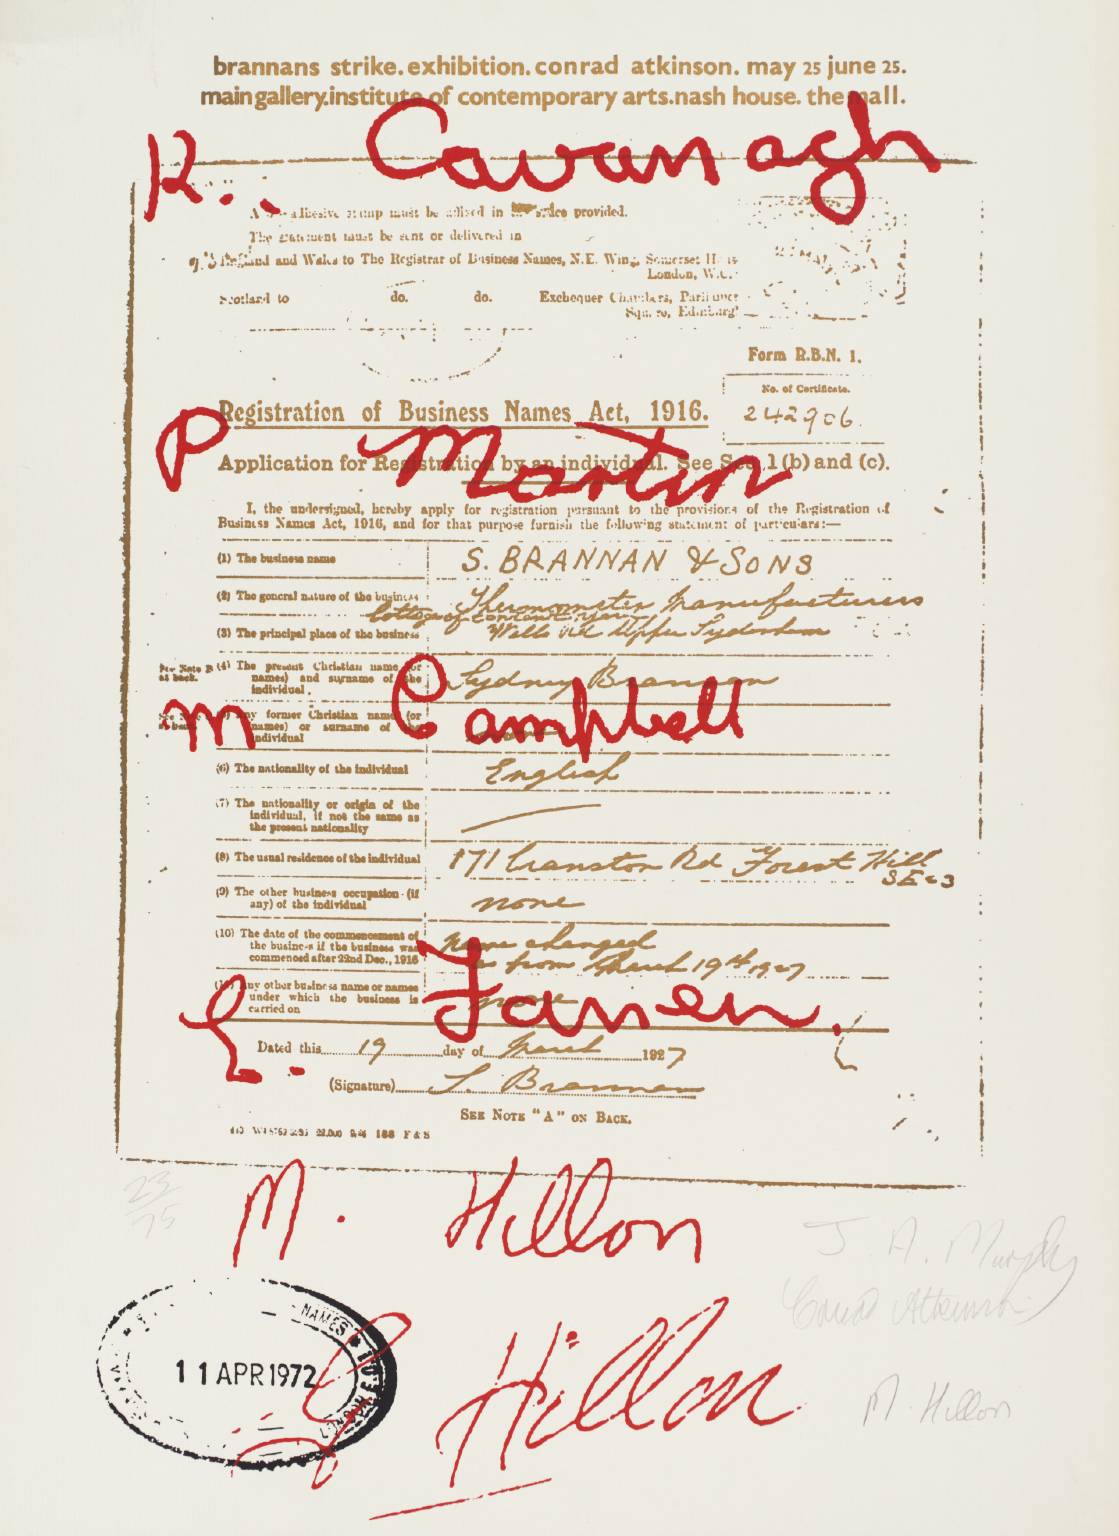 brannans strike. exhibition. conrad atkinson. may 25 june 25.
main gallery. institute of contemporary arts. nash house. the mall.
R.. Cavanagh
A adhesive stamp must be affixed in the space provided.
The statement must be sent or delivered in
England and Wales to The Registrar of Business Names, N.E. Wing, Somerset House
London, W.C.
Scotland to do. do. Exchequer Chambers, Parliament
Square, Edinburgh
Form R.B.N. 1.
No. of Certificate.
242906.
Registration of Business Names Act, 1916.
P Martin
Application for Registration by an individual. See Sec. 1 (b) and (c).
I, the undersigned, hereby apply for registration pursuant to the provisions of the Registration of
Business Names Act, 1916, and for that purpose furnish the following statement of particulars:—
(1) The business name S. BRANNAN & SONS
(2) The general nature of the business Thermometer Manufacturers
(3) The principal place of the business Wells Rd Upper Sydenham
See Note B at back. (4) The present Christian name (or names) and surname of the individual. Sydney Brannan
M Campbell
See Note at back. (5) Any former Christian name (or names) or surname of the individual
(6) The nationality of the individual English
(7) The nationality or origin of the individual, if not the same as the present nationality
(8) The usual residence of the individual 171 Cranston Rd Forest Hill
SE 23
(9) The other business occupation (if any) of the individual none
(10) The date of the commencement of the business if the business was commenced after 22nd Dec., 1916 name changed
as from March 19th 1927
(11) Any other business name or names under which the business is carried on none
E. Jansen.
Dated this 19 day of March 1927
(Signature) S. Brannan
SEE NOTE "A" ON BACK.
23/75
M. Hillon
J. A. Murphy
Conrad Atkinson
NAMES
11 APR 1972
Hillon
M. Hillon